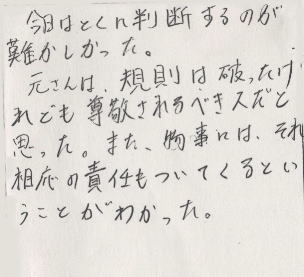 今日はとくに判断するのが
難かしかった。
元さんは、規則は破ったけ
れども尊敬されるべき人だと
思った。また、物事には、それ
相応の責任もついてくるとい
うことがわかった。